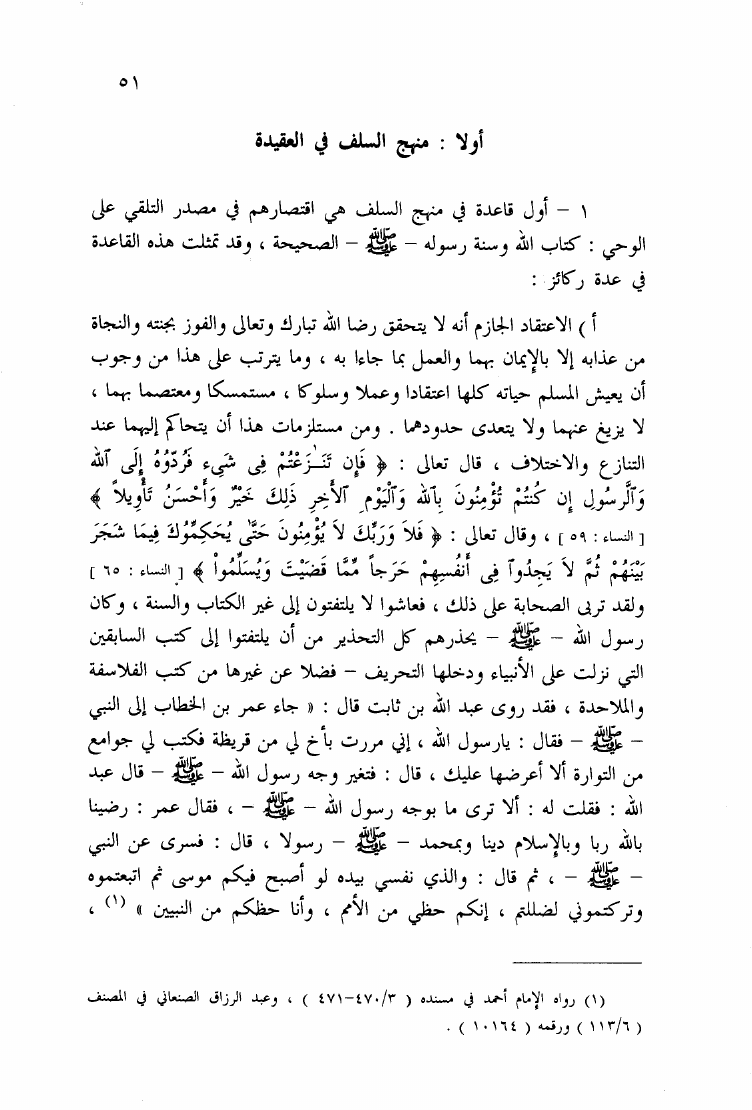 ٥١
أولا : منهج السلف في العقيدة
١ – أول قاعدة في منهج السلف هي اقتصارهم في مصدر التلقي على
الوحي : كتاب الله وسنة رسوله – ﷺ – الصحيحة ، وقد تمثلت هذه القاعدة
في عدة ركائز :
أ ) الاعتقاد الجازم أنه لا يتحقق رضا الله تبارك وتعالى والفوز بجنته والنجاة
من عذابه إلا بالإيمان بهما والعمل بما جاءا به ، وما يترتب على هذا من وجوب
أن يعيش المسلم حياته كلها اعتقادا وعملا وسلوكا ، مستمسكا ومعتصما بهما ،
لا يزيغ عنهما ولا يتعدى حدودهما . ومن مستلزمات هذا أن يتحاكم إليهما عند
التنازع والاختلاف ، قال تعالى : ﴿ فَإِن تَنَـٰزَعْتُمْ فِى شَىْءٍ فَرُدُّوهُ إِلَى ٱللَّهِ
وَٱلرَّسُولِ إِن كُنتُمْ تُؤْمِنُونَ بِٱللَّهِ وَٱلْيَوْمِ ٱلْأَخِرِ ذَٰلِكَ خَيْرٌ وَأَحْسَنُ تَأْوِيلاً ﴾
[ النساء : ٥٩ ] ، وقال تعالى : ﴿ فَلاَ وَرَبِّكَ لاَ يُؤْمِنُونَ حَتَّىٰ يُحَكِّمُوكَ فِيمَا شَجَرَ
بَيْنَهُمْ ثُمَّ لاَ يَجِدُواْ فِى أَنفُسِهِمْ حَرَجاً مِّمَّا قَضَيْتَ وَيُسَلِّمُواْ ﴾ [ النساء : ٦٥ ]
ولقد تربى الصحابة على ذلك ، فعاشوا لا يلتفتون إلى غير الكتاب والسنة ، وكان
رسول الله – ﷺ – يحذرهم كل التحذير من أن يلتفتوا إلى كتب السابقين
التي نزلت على الأنبياء ودخلها التحريف – فضلا عن غيرها من كتب الفلاسفة
والملاحدة ، فقد روى عبد الله بن ثابت قال : « جاء عمر بن الخطاب إلى النبي
– ﷺ – فقال : يارسول الله ، إني مررت بأخ لي من قريظة فكتب لي جوامع
من التوارة ألا أعرضها عليك ، قال : فتغير وجه رسول الله – ﷺ – قال عبد
الله : فقلت له : ألا ترى ما بوجه رسول الله – ﷺ – ، فقال عمر : رضينا
بالله ربا وبالإسلام دينا وبمحمد – ﷺ – رسولا ، قال : فسرى عن النبي
– ﷺ – ، ثم قال : والذي نفسي بيده لو أصبح فيكم موسى ثم اتبعتموه
وتركتموني لضللتم ، إنكم حظي من الأمم ، وأنا حظكم من النبيين » (١) ،
(١) رواه الإمام أحمد في مسنده ( ٤٧٠/٣–٤٧١ ) ، وعبد الرزاق الصنعاني في المصنف
( ١١٣/٦ ) ورقمه ( ١٠١٦٤ ) .